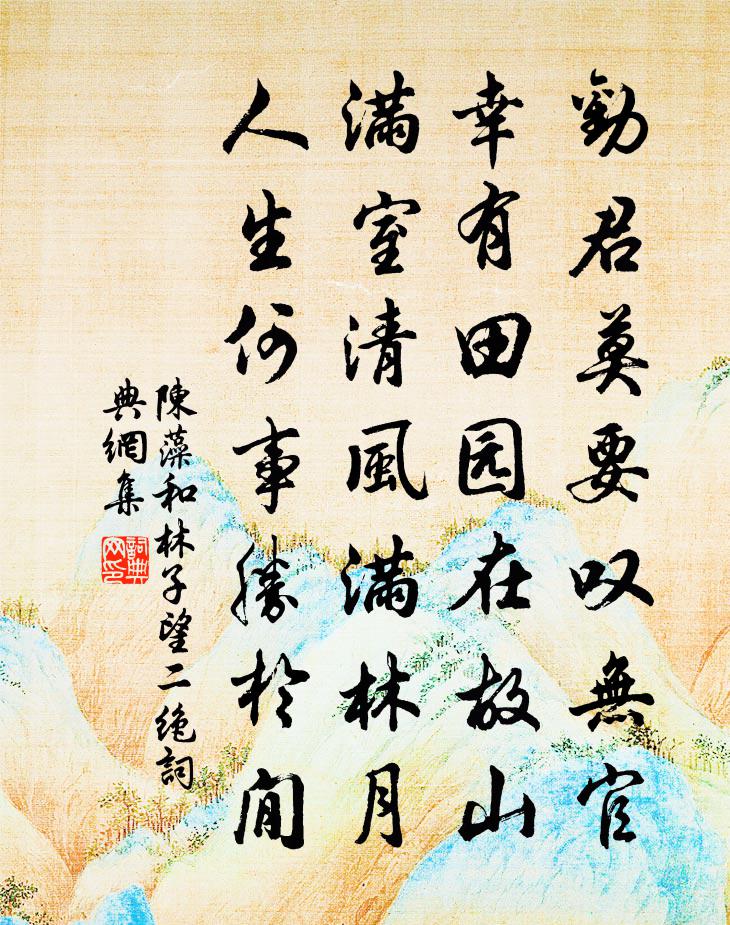 勸君莫要叹無官
幸有田园在故山
滿室清風滿林月
人生何事勝於閒
陳藻和林子望二絶詞
典網集
詞典
网印